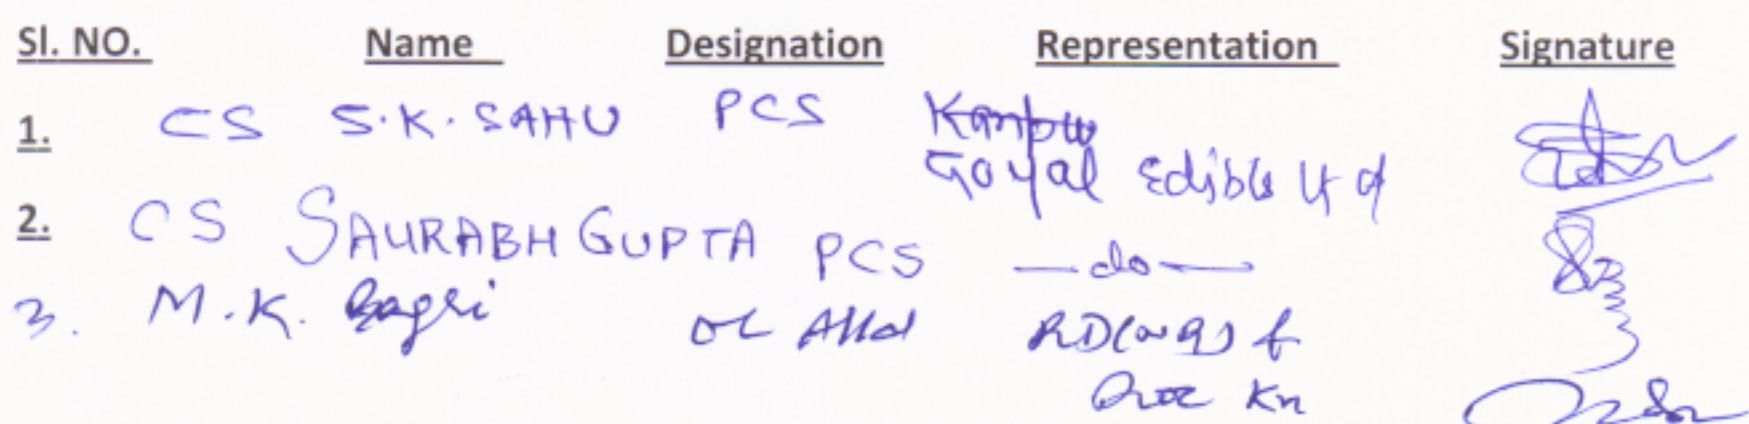 Sl. NO. Name Designation Representation Signature
1. CS S.K. SAHU PCS Kanpur
Goyal Edible Ltd
2. CS SAURABH GUPTA PCS — do —
3. M.K. Bagri OL Alld RD(NR) &
ROC Kn